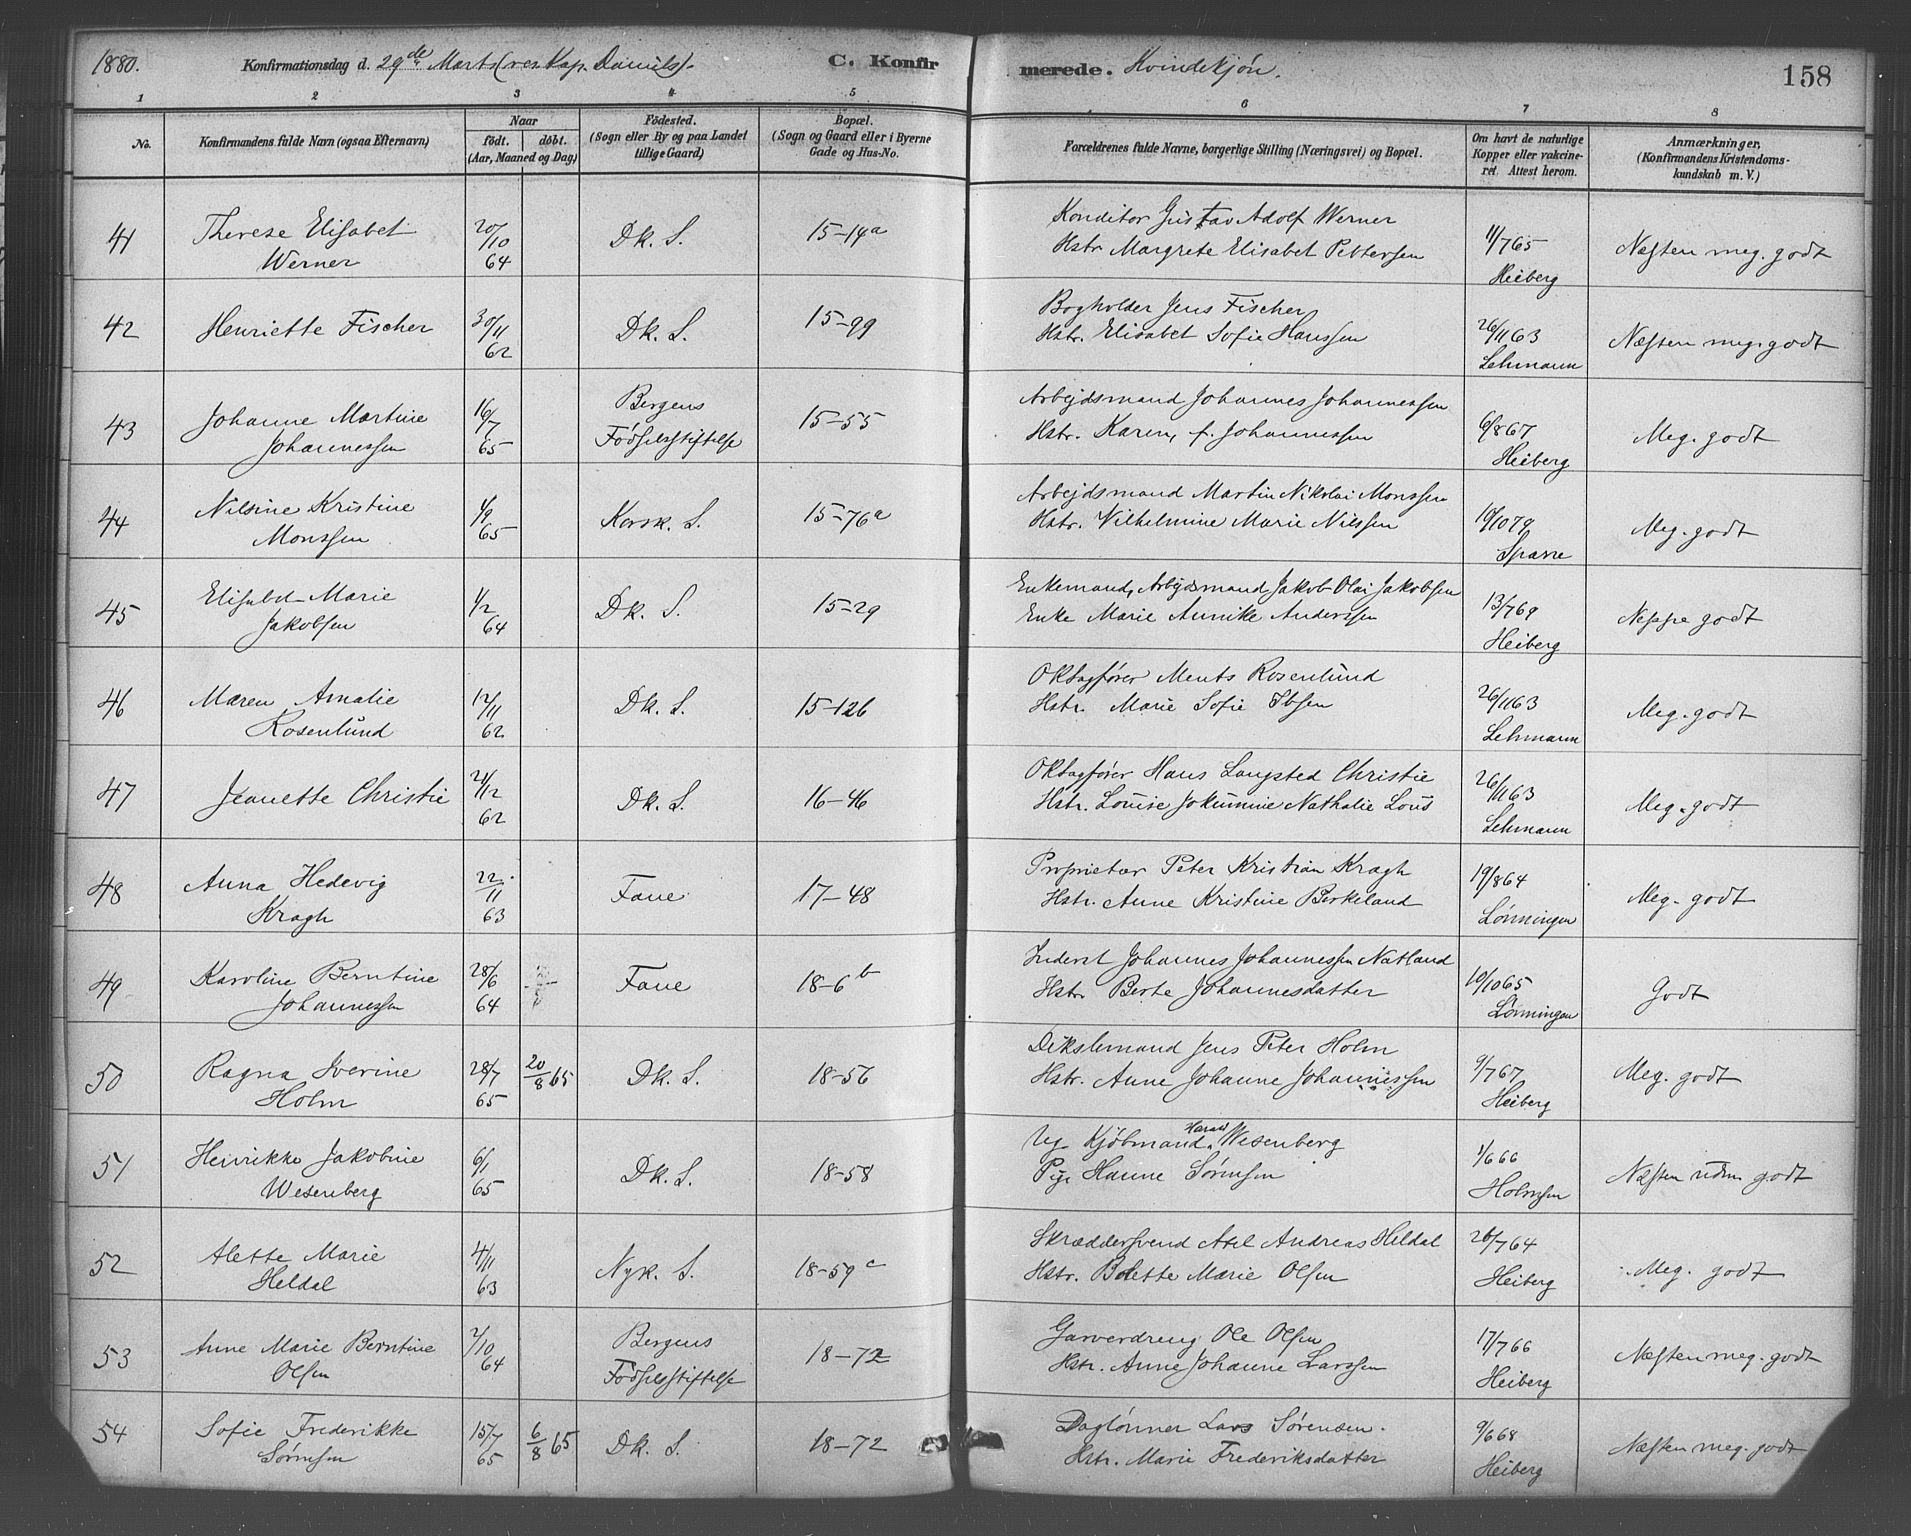 1880. Konfirmationsdag d. 29de Marts (res. Kap. Daniels). C. Konfirmerede. Kvindekjøn. 158
1 2 3 4 5 6 7 8
No.
Konfirmandens fulde Navn (ogsaa Efternavn)
Naar
födt. döbt.
(Aar, Maaned og Dag)
Födested.
(Sogn eller By og paa Landet
tillige Gaard)
Bopæl.
(Sogn og Gaard eller i Byerne
Gade og Hus-No.
Forældrenes fulde Navne, borgerlige Stilling (Næringsvei) og Bopæl.
Om havt de naturlige
Kopper eller vakcine-
ret. Attest herom.
Anmærkninger,
(Konfirmandens Kristendoms-
kundskab m. V.)
41 Therese Elisabet 20/10 Dk. S. 15-14a Konditor Gustav Adolf Werner 11/765 Næsten meg. godt
Werner 64 Hstr Margrete Elisabet Pettersen Heiberg
42 Henriette Fischer 30/11 Dk. S. 15-99 Bogholder Jens Fischer 26/1163 Næsten meg. godt
62 Hstr. Elisabet Sofie Hanssen Lehmann
43 Johanne Martine 16/7 Bergens 15-55 Arbejdsmand Johannes Johannessen 6/867 Meg. godt
Johannessen 65 Födselsstiftelse Hstr. Karen, f. Johannessen Heiberg
44 Nilsine Kristine 1/9 Korsk. S. 15-76a Arbejdsmand Martin Nikolai Monssen 19/1079 Meg. godt
Monssen 65 Hstr. Vilhelmine Marie Nilssen Sparre
45 Elisabet Marie 1/2 Dk. S. 15-29 Enkemand, Arbejdsmand Jakob Olai Jakobsen 13/769 Neppe godt
Jakobsen 64 Enke Marie Annike Anderssen Heiberg
46 Maren Amalie 12/11 Dk. S. 15-126 Oktagfører Ments Rosenlund 26/1163 Meg. godt
Rosenlund 62 Hstr. Marie Sofie Ibsen Lehmann
47 Jeanette Christie 21/12 Dk. S. 16-46 Oktagfører Hans Langsted Christie 26/1163 Meg. godt
62 Hstr. Louise Jokumine Nathalie Lous Lehmann
48 Anna Hedevig 22/11 Fane 17-48 Proprietær Peter Kristian Kragh 19/864 Meg. godt
Kragh 63 Hstr. Anne Kristine Birkeland Lønningen
49 Karoline Berntine 28/6 Fane 18-6b Inderst Johannes Johannessen Natland 10/1065 Godt
Johannessen 64 Hstr Berte Johannesdatter Lønningen
50 Ragna Iverine 28/7 20/8 65 Dk. S. 18-56 Jens Peter Holm 9/767 Meg. godt
Holm 65 Hstr. Anne Johanne Johannessen Heiberg
51 Henrikke Jakobine 6/1 Dk. S. 18-58 Ug. Kjöbmand Harald Wesenberg 1/666 Næsten uden godt
Wesenberg 65 Pige Hanne Sørensen Holmsen
52 Alette Marie 4/11 Nyk. S. 18-59c Skræddersvend Axel Andreas Heldal 26/764 Meg. godt
Heldal 63 Hstr. Bolette Marie Olsen Heiberg
53 Anne Marie Berntine 2/10 Bergens 18-72 Garverdreng Ole Olsen 17/766 Næsten meg. godt
Olsen 64 Födselsstiftelse Hstr. Anne Johanne Larssen Heiberg
54 Sofie Frederikke 15/7 6/8 65 Dk. S. 18-72 Daglönner Lars Sörensen. 9/668 Næsten meg. godt
Sörensen 65 Hstr. Marie Frederiksdatter Heiberg